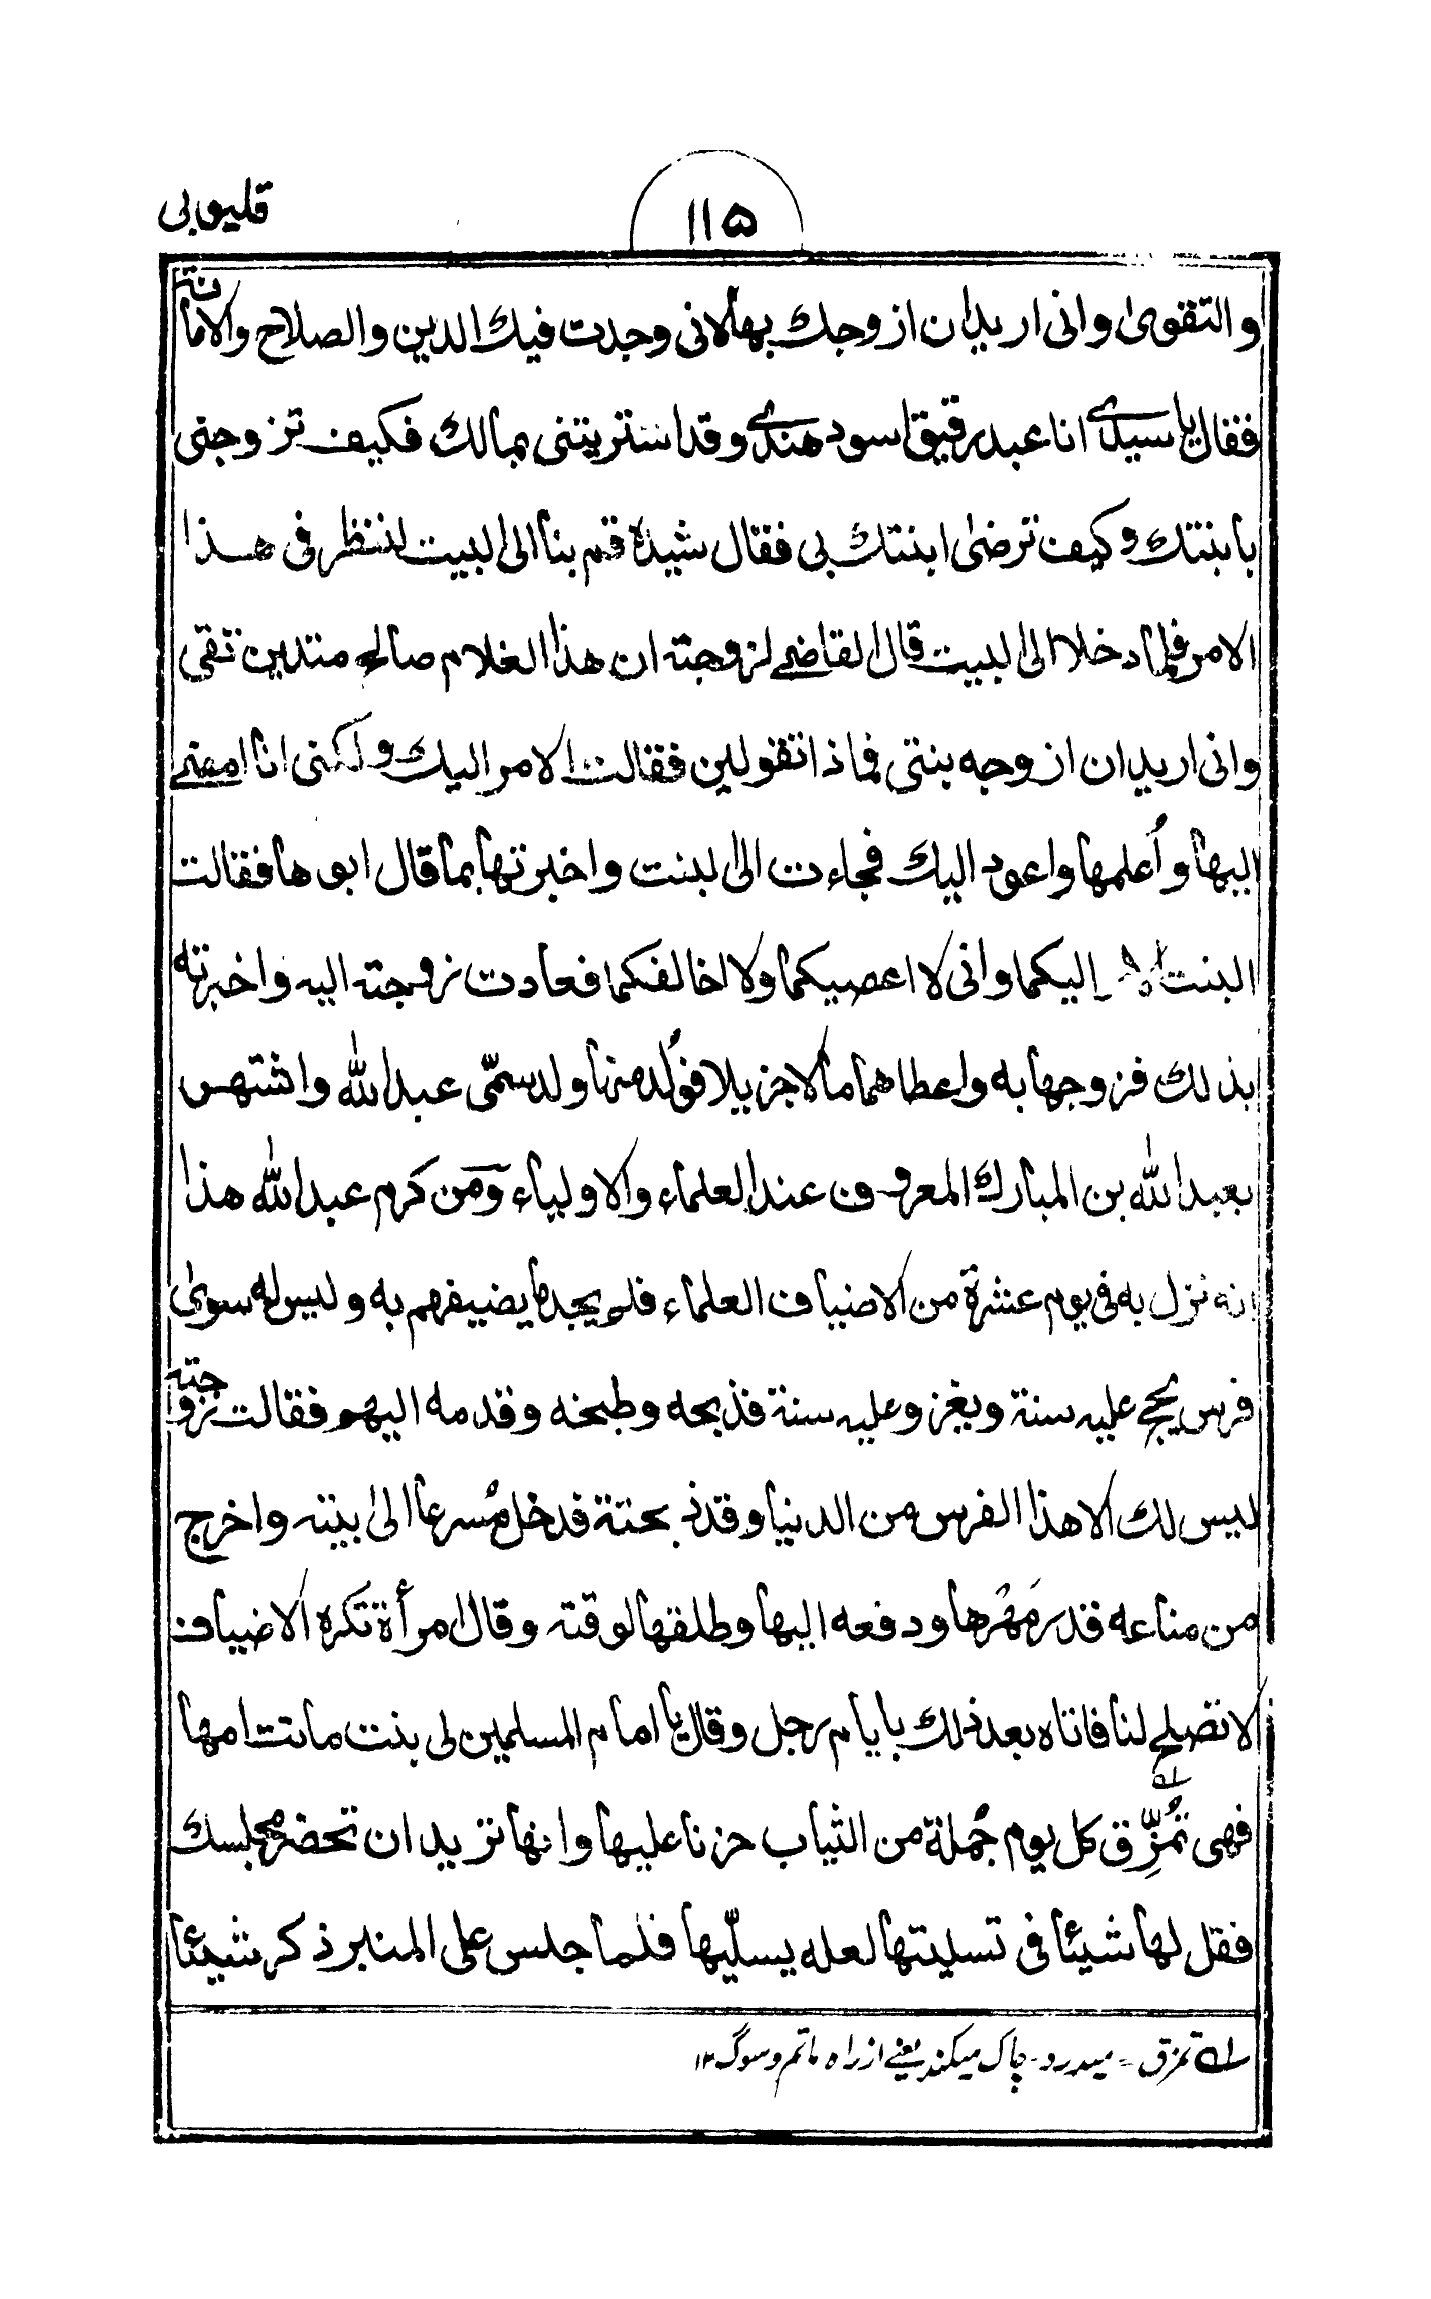 قليوبي
١١٥
والتقوىٰ وانى اريد ان ازوجك بها لانى وجدت فيك الدين والصلاح والامانة
فقال يا سيدى انا عبد رقيق اسود هندى وقد اشتريتنى بمالك فكيف تزوجنى
بابنتك وكيف ترضىٰ ابنتك بى فقال سيده قم بنا الى البيت لننظر فى هذا
الامر فلما دخلا الى البيت قال القاضى لزوجته ان هذا الغلام صالح متدين تقى
وانى اريد ان ازوجه بنتى فماذا تقولين فقالت الامر اليك ولكنى انا امضى
اليها وأعلمها واعود اليك فجاءت الى البنت واخبرتها بما قال ابوها فقالت
البنت الامر اليكما وانى لا اعصيكما ولا اخالفكما فعادت زوجته اليه واخبرته
بذلك فزوجها به واعطاهما مالا جزيلا فوُلد منها ولد سمّى عبد الله واشتهر
بعبد الله بن المبارك المعروف عند العلماء والاولياء ومن كرم عبد الله هذا
انه نزل به فى يوم عشرة من الاضياف العلماء فلم يجد ما يضيفهم به وليس له سوىٰ
فرس يحج عليه سنة ويغزو عليه سنة فذبحه وطبخه وقدمه اليهم فقالت زوجته
ليس لك الا هذا الفرس من الدنيا وقد ذبحته فدخل مُسرعا الىٰ بيته واخرج
من متاعه قدر مَهْرها ودفعه اليها وطلقها لوقته وقال امرأة تكره الاضياف
لا تصلح لنا فاتاه بعد ذلك بايام رجل وقال يا امام المسلمين لى بنت ماتت امها
فهى تُمزِّق كل يوم جُملة من الثياب حزنا عليها وانها تريد ان تحضر مجلسك
فقل لها شيئا فى تسليتها لعله يسلّيها فلما جلس على المنبر ذكر شيئا
له تمزق = ميدرد - چاک ميكند يعنے از راه ماتم و سوگ ١٢